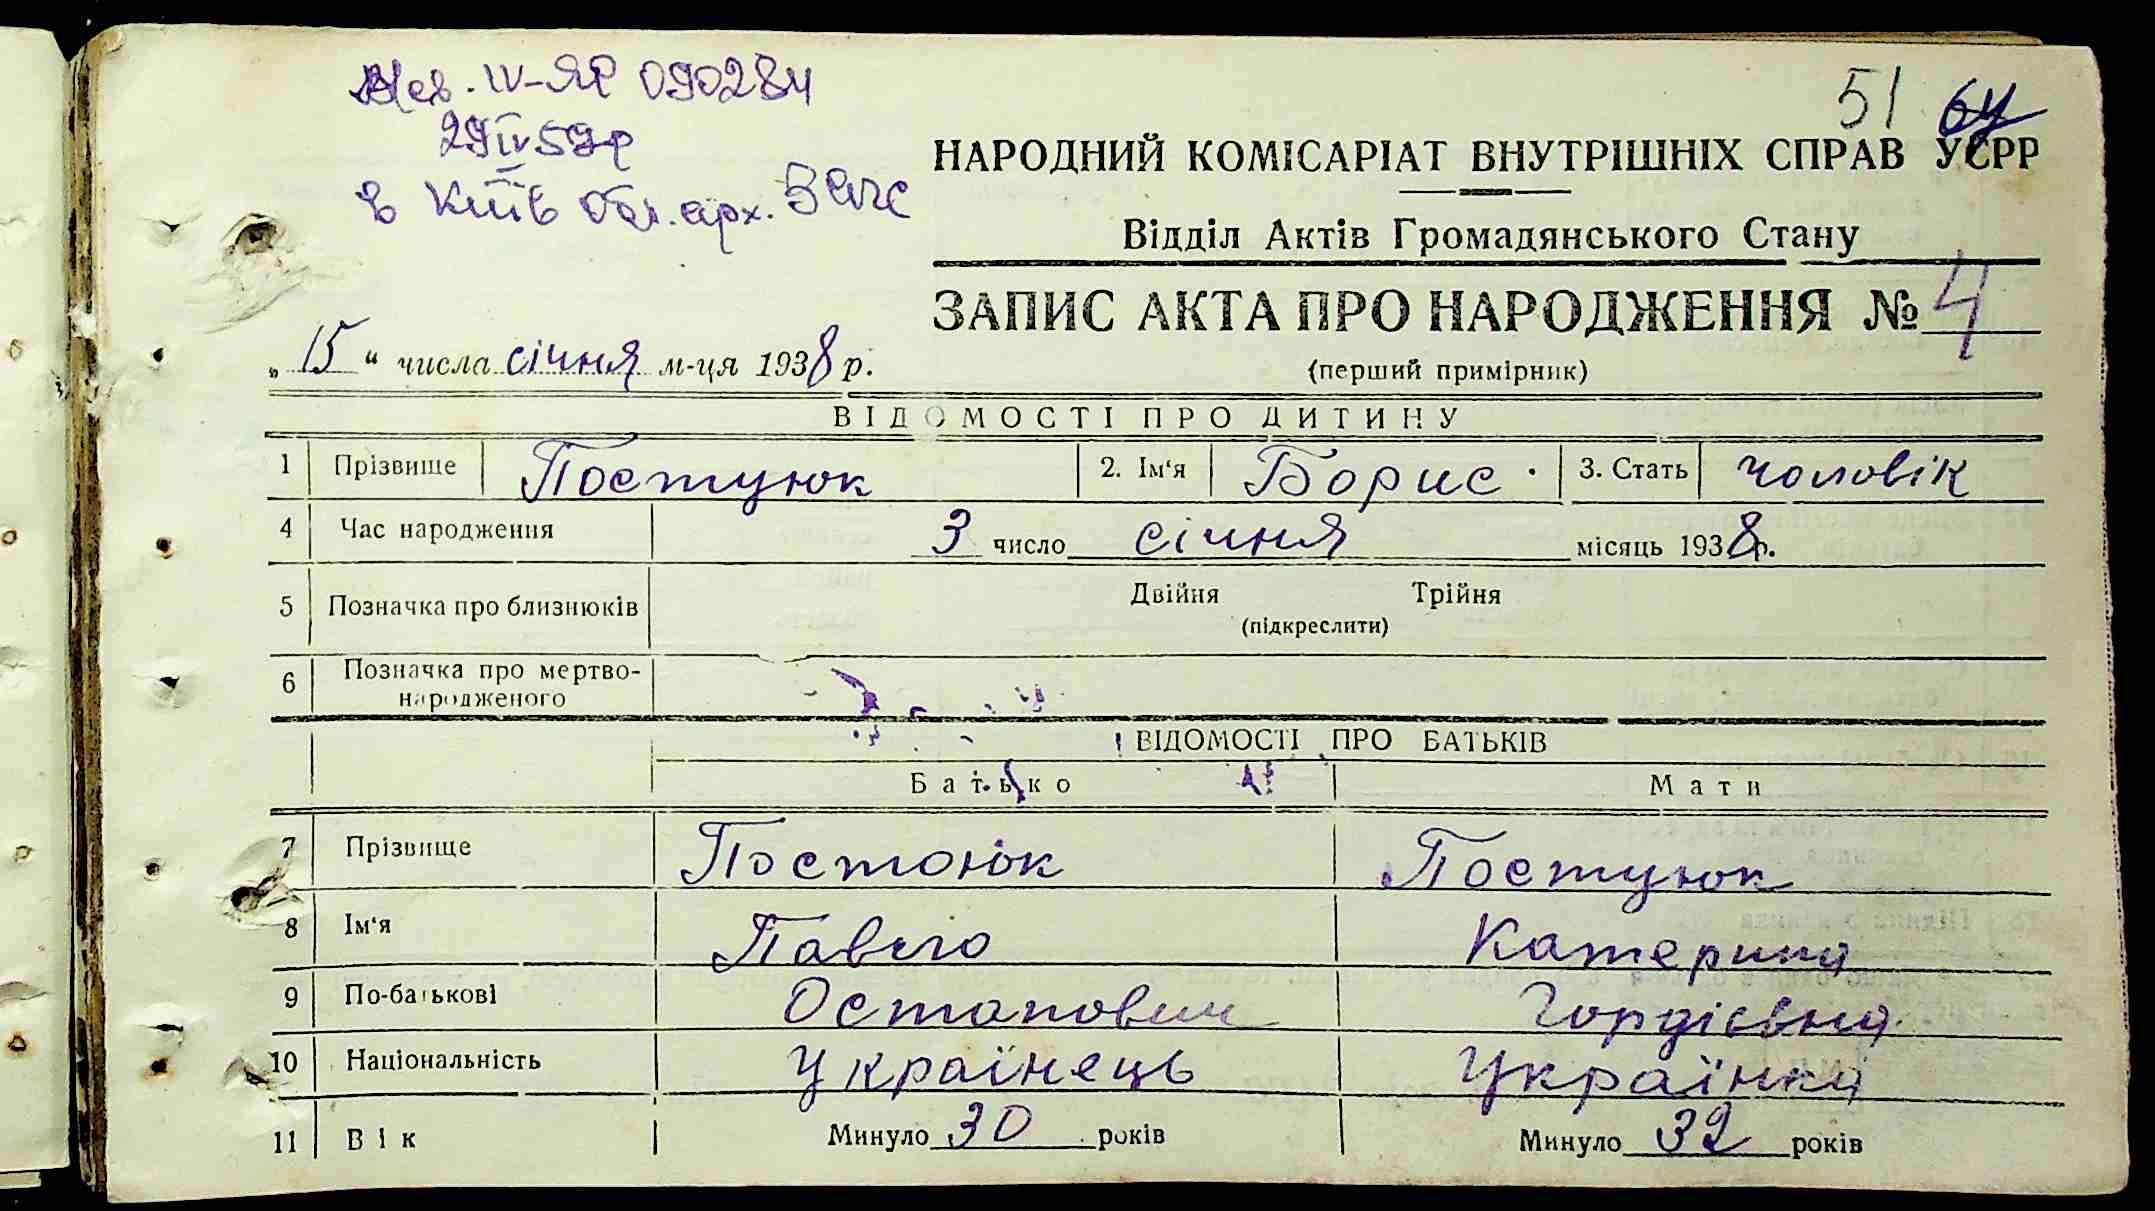 IV-ЯР 090284
29 IV 59р
в Київ обл. арх. Загс
51 64
НАРОДНИЙ КОМІСАРІАТ ВНУТРІШНІХ СПРАВ УСРР
Відділ Актів Громадянського Стану
ЗАПИС АКТА ПРО НАРОДЖЕННЯ № 4
(перший примірник)
„ 15 “ числа січня м-ця 1938 р.
ВІДОМОСТІ ПРО ДИТИНУ
1 Прізвище Постуюк 2. Ім‘я Борис. 3. Стать чоловік
4 Час народження 3 число січня місяць 1938 р.
5 Позначка про близнюків Двійня Трійня
(підкреслити)
6 Позначка про мертво-
народженого
ВІДОМОСТІ ПРО БАТЬКІВ
Батько Мати
7 Прізвище Постоюк Постуюк
8 Ім‘я Павло Катерина
9 По-батькові Остапович Гордієвна
10 Національність Українець Українка
11 Вік Минуло 30 років Минуло 32 років